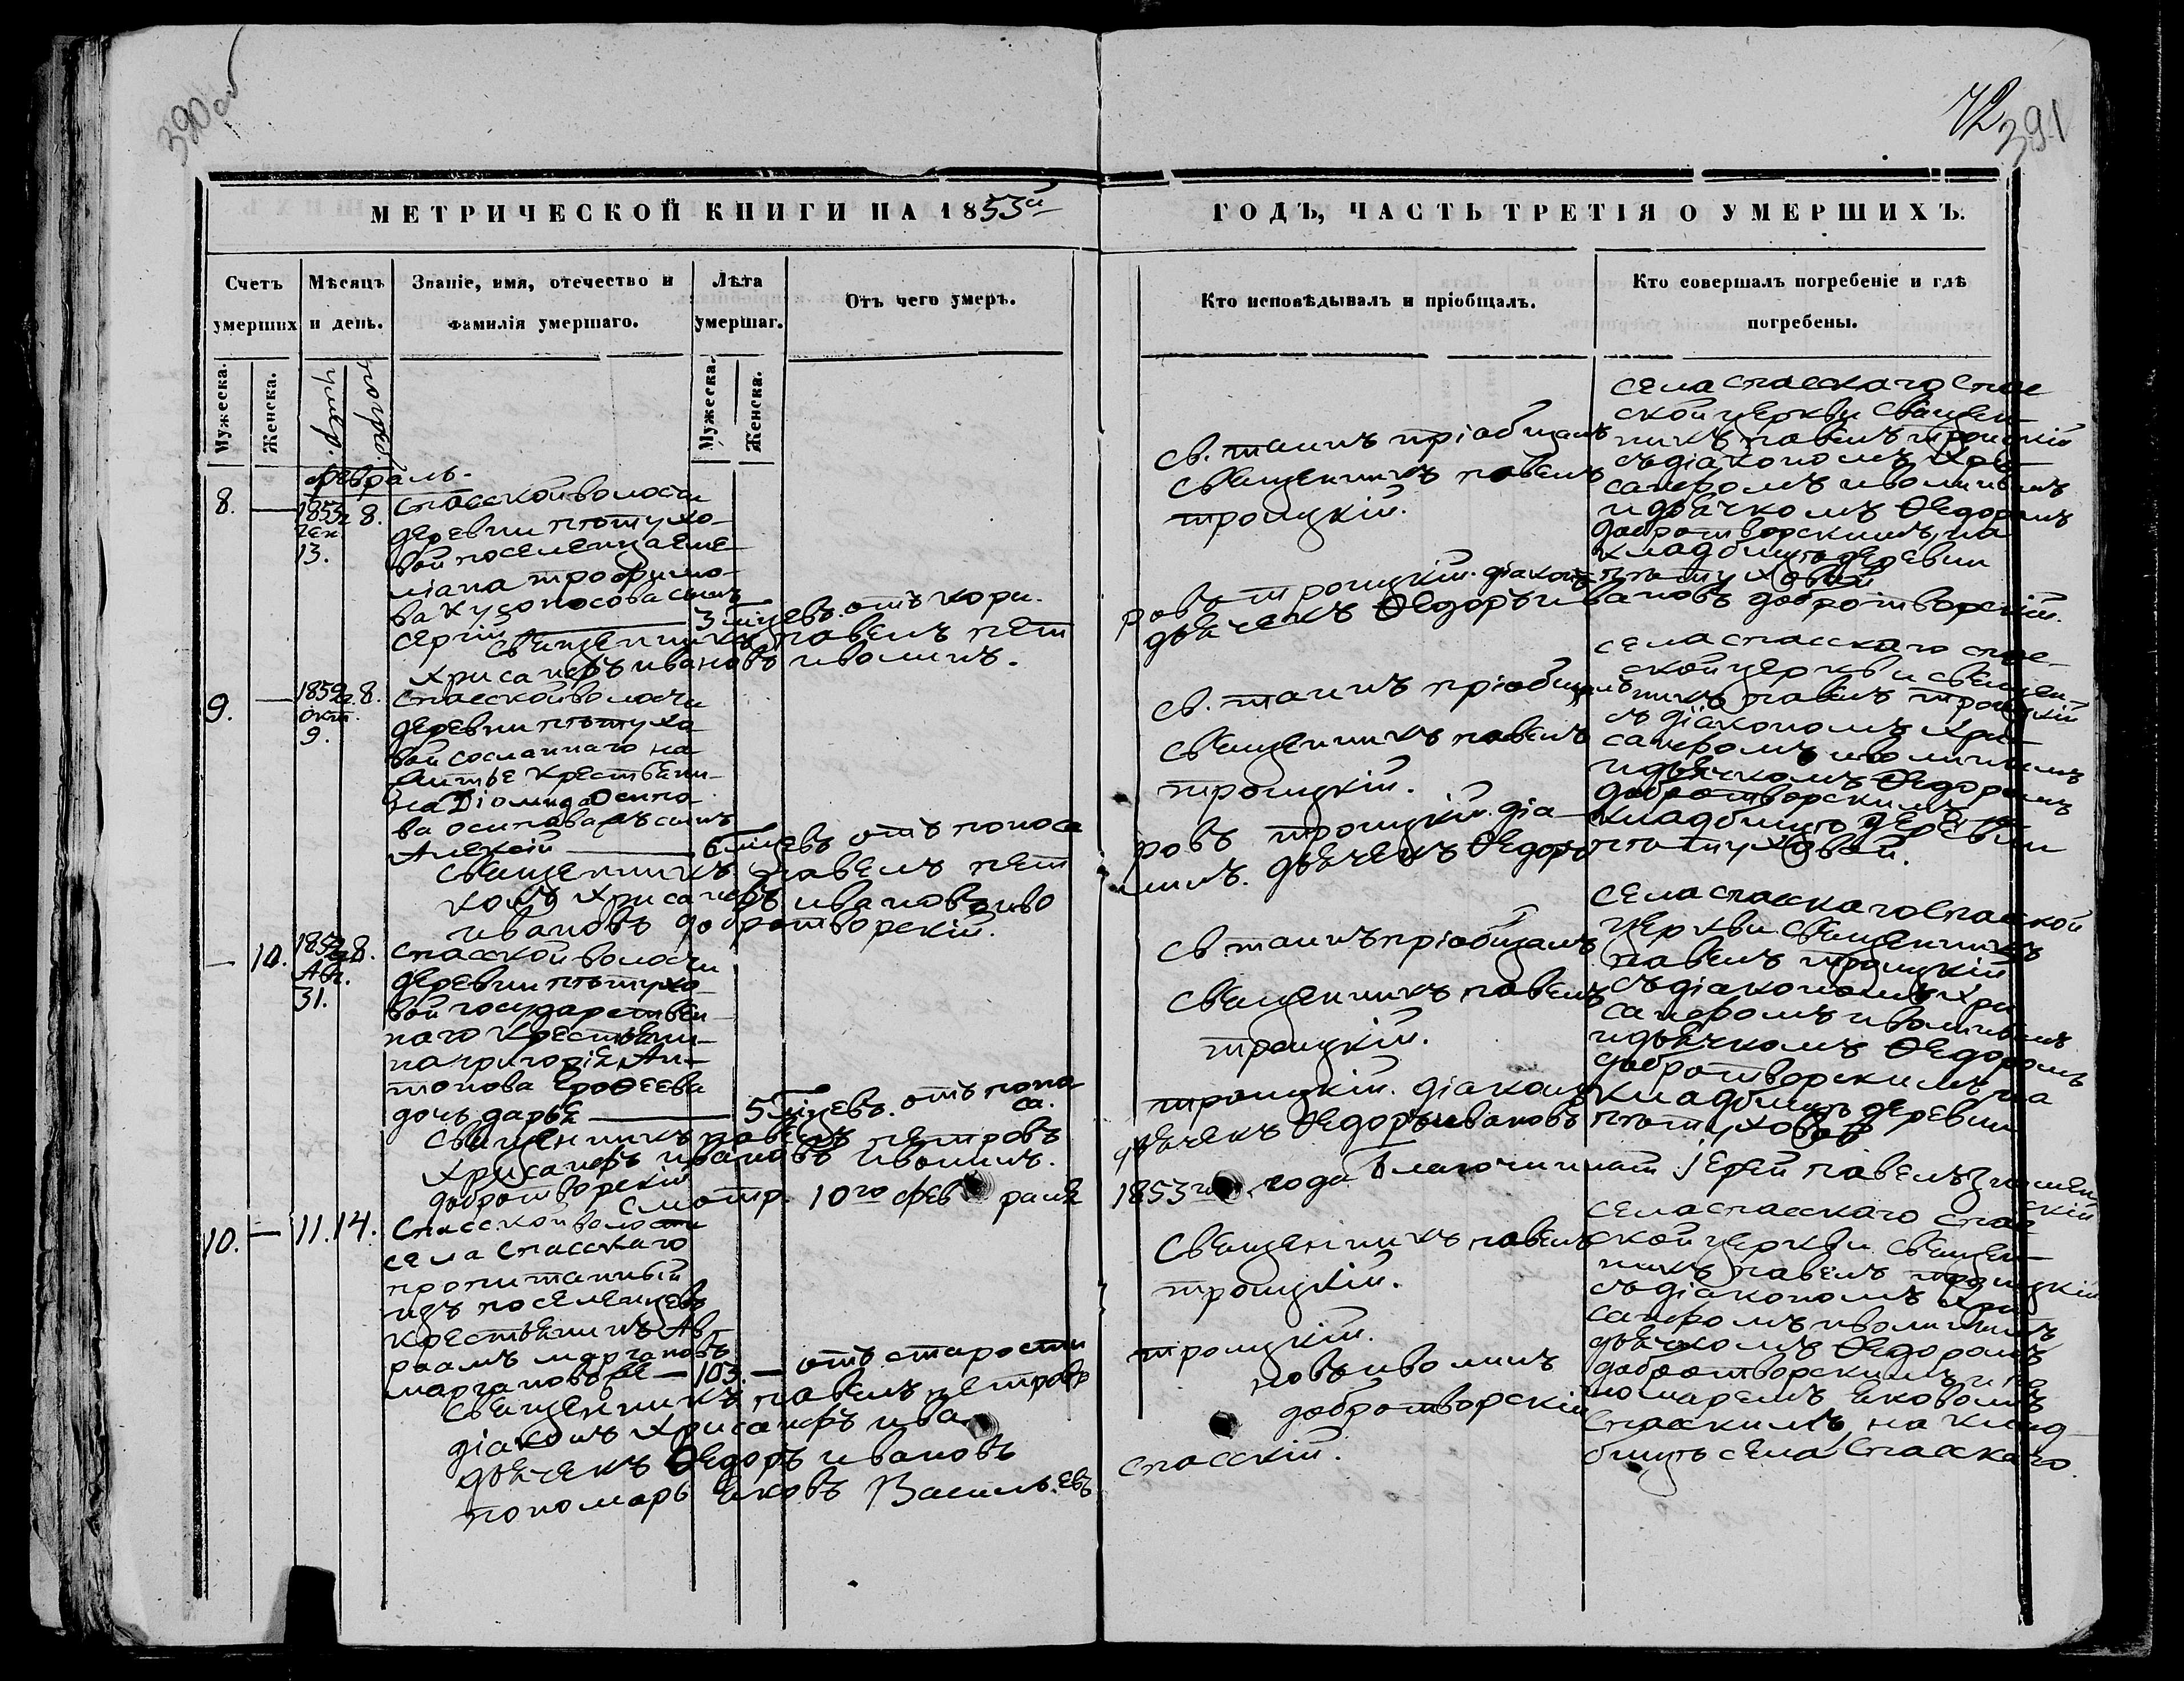 390 об
72
391
МЕТРИЧЕСКОЙ КНИГИ НА 1853й
ГОДЪ, ЧАСТЬ ТРЕТІЯ О УМЕРШИХЪ.
Счетъ умерших
Мѣсяцъ и день.
Званіе, имя, отечество и фамилія умершаго.
Лѣта умершаг.
Отъ чего умеръ.
Кто исповѣдывалъ и пріобщалъ.
Кто совершалъ погребеніе и гдѣ погребены.
Мужеска.
Женска.
умер.
погреб.
Мужеска.
Женска.
февраль.
8.
—
1853г
ген
13.
8.
Спасской волости
деревни Птатухо-
вой поселенца Еме-
ліана Трофимо-
ва Курносова сынъ
Сергій — 3 мцевъ. отъ кори.
св. таинъ пріобщалъ
священникъ Павелъ
Троицкій.
села Спасскаго Спас
ской церкви священ-
никъ Павелъ Троицкій
съ діакономъ Хри-
санфомъ Иволинымъ
и дьячкомъ Ѳедоромъ
Добротворскимъ, на
кладбищѣ деревни
Птатуховой
Священникъ Павелъ Пет
ровъ Троицкій. діаконъ
Хрисанфъ Ивановъ Иволинъ.
дьячекъ Ѳедоръ Ивановъ Добротворскій.
9.
—
1852г.
окт.
9.
8.
Спасской волости
деревни Птатухо
вой сосланнаго на
житье крестьяни-
на Діомида Осипо
ва Осипова сынъ
Алексій — 6 мцевъ отъ поноса
св. таинъ пріобщалъ
священникъ Павелъ
Троицкій.
села Спасскаго Спас-
ской церкви священ-
никъ Павелъ Троицкій
съ діакономъ Хри-
санфомъ Иволинымъ
и дьячкомъ Ѳедоромъ
Добротворскимъ на
кладбищѣ деревни
Птатуховой.
Священникъ Павелъ Пет
ровъ Троицкій. діа-
конъ Хрисанфъ Ивановъ Иво
линъ. дьячекъ Ѳедоръ
Ивановъ Добротворскій.
—
10.
1852г.
Авг.
31.
8.
Спасской волости
деревни Птатухо
вой государствен-
наго крестьяни-
на Григорія Ан-
тонова Ероѳеева
дочь Дарья — 5 мцевъ. отъ поно
са.
св. таинъ пріобщалъ
священникъ Павелъ
Троицкій.
села Спасскаго Спасской
церкви священникъ
Павелъ Троицкій
съ діакономъ Хри
санфомъ Иволинымъ
и дьячкомъ Ѳедоромъ
Добротворскимъ на
кладбищѣ деревни
Птатуховой
Священникъ Павелъ Петровъ
Троицкій. діаконъ
Хрисанфъ Ивановъ Иволинъ.
дьячекъ Ѳедоръ Ивановъ
Добротворскій
Смотр. 10го фев раля
1853го года Благочинный Іерей Павелъ
скій
10.
—
11.
14.
Спасской волости
села Спасскаго
пропитанный
изъ поселенцевъ
крестьянинъ Ав-
раамъ
— 103. — отъ старости
Священникъ Павелъ
Троицкій.
села Спасскаго Спас
ской церкви священ-
никъ Павелъ Троицкій
съ діакономъ Хри
санфомъ Иволинымъ
дьячкомъ Ѳедоромъ
Добротворскимъ и по
номаремъ Яковомъ
Спасскимъ, на клад-
бищѣ села Спасскаго.
Священникъ Павелъ Петровъ
Троицкій.
діаконъ Хрисанфъ Ива
новъ Иволинъ
дьячекъ Ѳедоръ Ивановъ
Добротворскій
пономарь Яковъ Васильевъ
Спасскій.